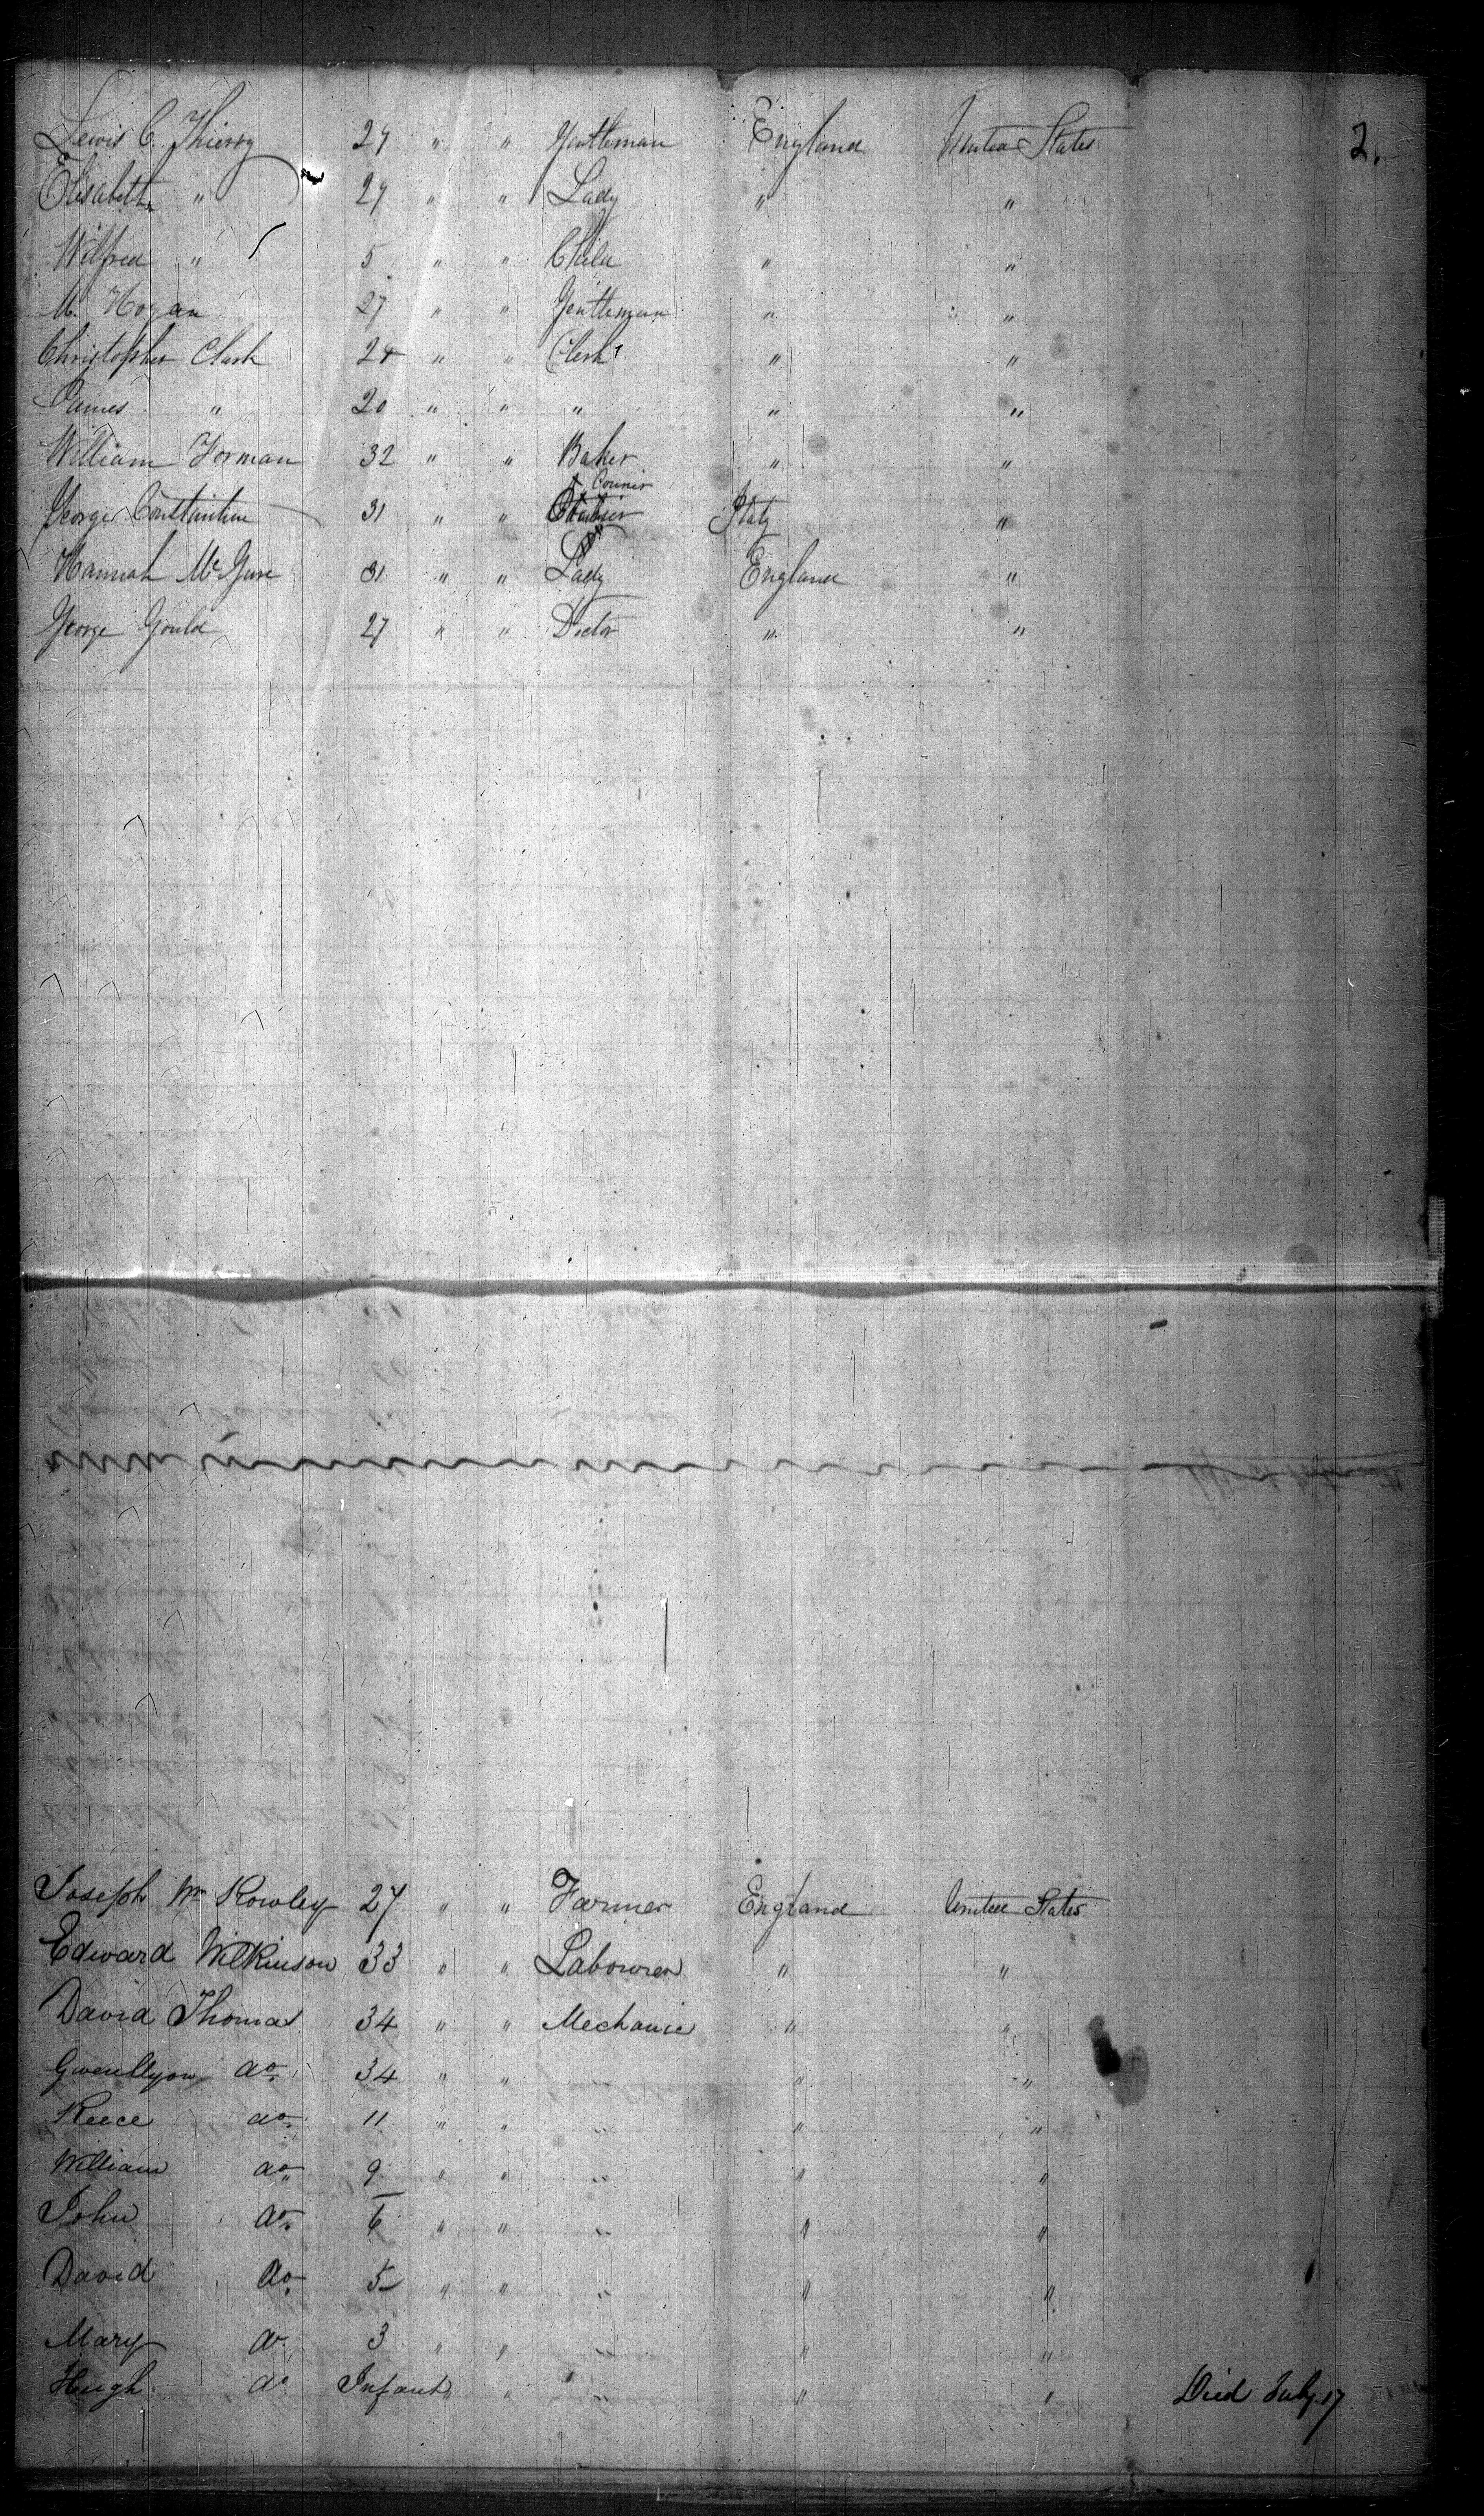 2.
Lewis C. Thierry 27 " " Gentleman England United States
Elisabeth " 27 " " Lady " "
Wilfred " 5 " " Child " "
M. Hogan 27 " " Gentleman " "
Christopher Clark 24 " " Clerk " "
James " 20 " " " " "
William Forman 32 " " Baker " "
Courier
George Constantine 31 " " Italy "
Hannah Mc Gure 31 " " Lady England "
George Gould 27 " " Doctor " "
Joseph Wm Rowley 27 " " Farmer England United States
Edward Wilkinson 33 " " Labourer " "
David Thomas 34 " " Mechanic " "
Gwenllyon do 34 " " " "
Reece do 11 " " " " "
William do 9 " " " " "
John do 6 " " " " "
David do 5 " " " " "
Mary do 3 " " " " "
Hugh do Infant " " " " Died July 17